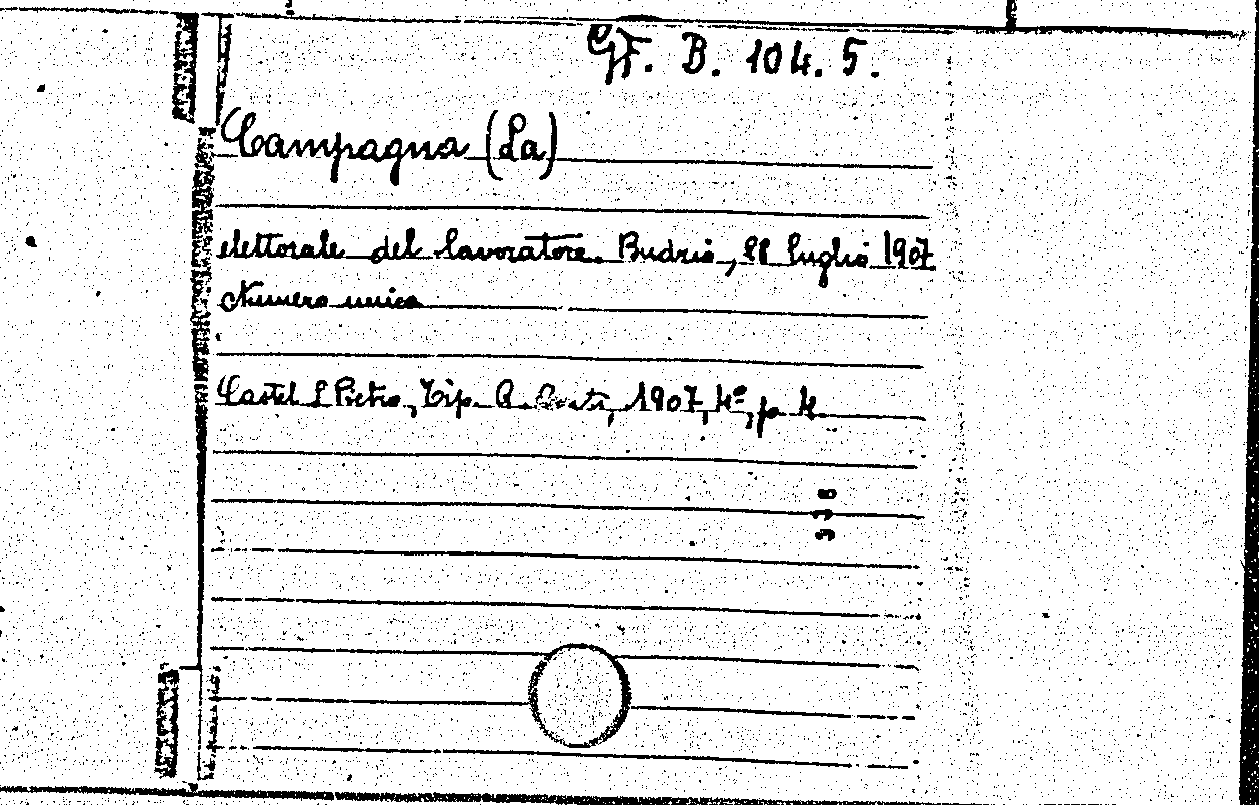 GF. B. 104. 5.
Campagna (La)
elettorale del lavoratore. Budrio, 28 luglio 1907.
Numero unico
Castel S Pietro, Tip. A. Conti, 1907, 4º, p. 4